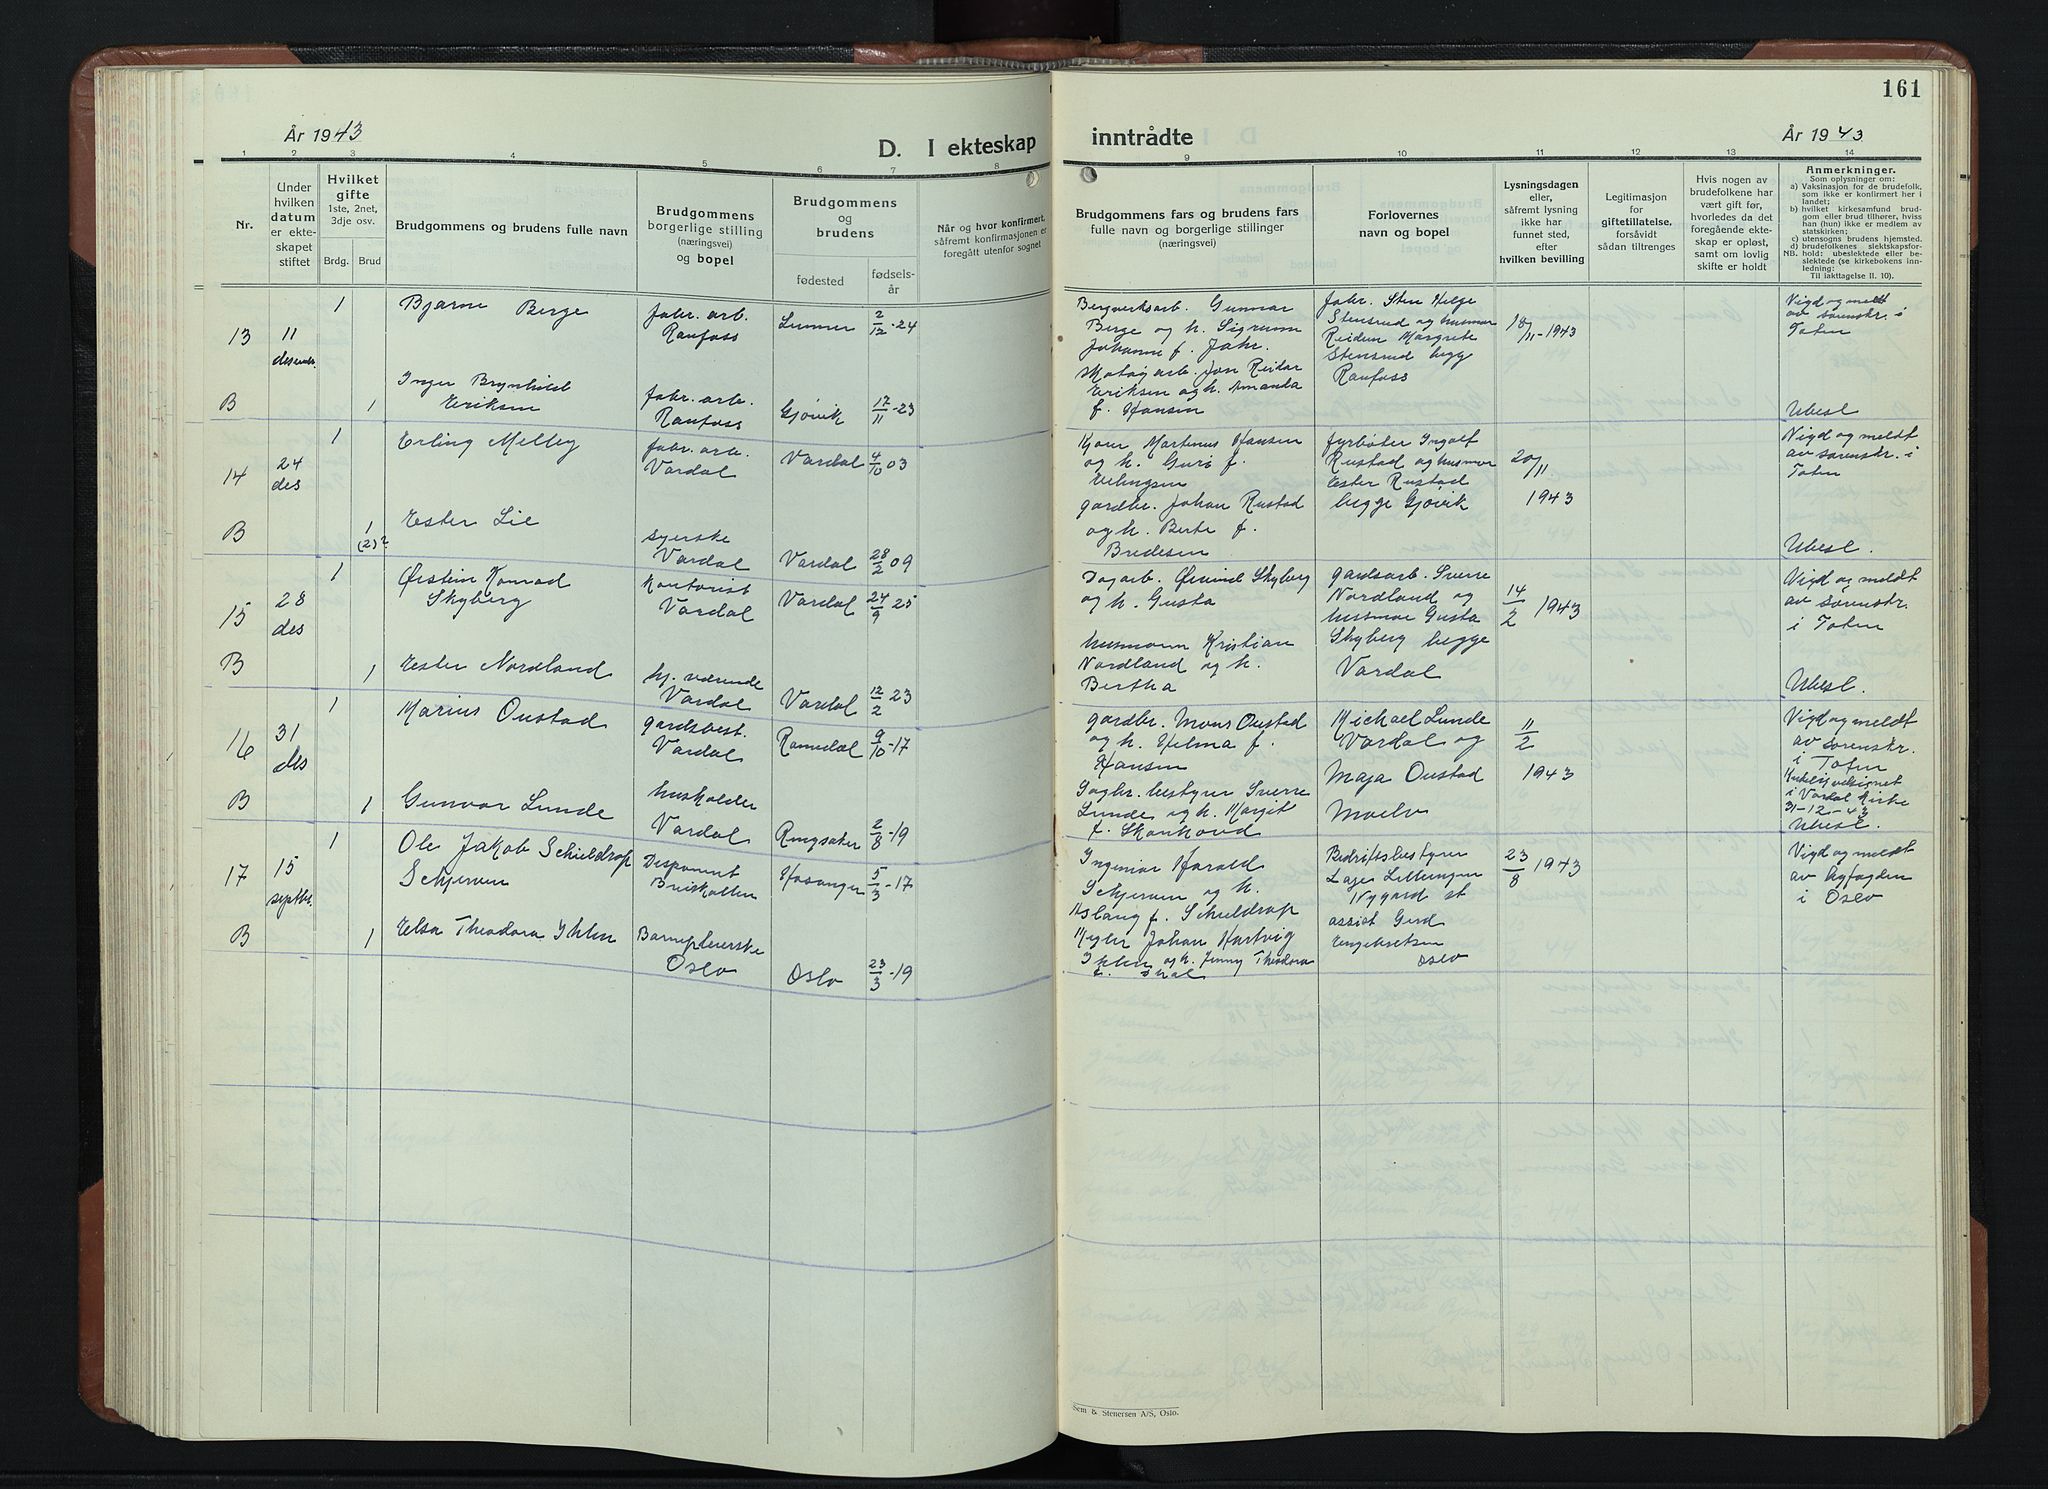 161
År 1943
D. I ekteskap
inntrådte
År 1943
1 2 3 4 5 6 7 8 9 10 11 12 13 14
Nr.
Under
hvilken
datum
er ekte-
skapet
stiftet
Hvilket
gifte
1ste, 2net,
3dje osv.
Brdg. Brud
Brudgommens og brudens fulle navn
Brudgommens
borgerlige stilling
(næringsvei)
og bopel
Brudgommens
og
brudens
fødested
fødsels-
år
Når og hvor konfirmert,
såfremt konfirmasjonen er
foregått utenfor sognet
Brudgommens fars og brudens fars
fulle navn og borgerlige stillinger
(næringsvei)
Forlovernes
navn og bopel
Lysningsdagen
eller,
såfremt lysning
ikke har
funnet sted,
efter
hvilken bevilling
Legitimasjon
for
giftetillatelse,
forsåvidt
sådan tiltrenges
Hvis nogen av
brudefolkene har
vært gift før,
hvorledes da det
foregående ekte-
skap er opløst,
samt om lovlig
skifte er holdt
Anmerkninger.
Som oplysninger om:
a) Vaksinasjon for de brudefolk,
som ikke er konfirmert her i
landet;
b) hvilket kirkesamfund brud-
gom eller brud tilhører, hviss
han (hun) ikke er medlem av
statskirken;
c) utensogns brudens hjemsted.
d) brudefolkenes slektskapsfor-
NB. hold: ubeslektede eller be-
slektede (se kirkebokens inn-
ledning:
Til iakttagelse II. 10).
13
11
desembr.
1
Bjarne Berge
fabr. arb.
Raufoss
Lunner
2/12-24
Bergverksarb. Gunnar
Berge og h. Sigrunn
Johanne f. Jahr.
fabr. Sten Helge
Stensrud og husmor
Reidun Margrete
Stensrud begge
Raufoss
18/11-1943
Vigd og meldt
av sorenskr. i
Toten
B
1
Inger Brynhild
Eriksen
fabr. arb.
Raufoss
Gjøvik
17/11-23
arb. Jon Reidar
Eriksen og h. Amanda
f. Hansen
Ubesl
14
24
des
1
Erling Melby
fabr. arb.
Vardal
Vardal
4/10 03
Martinus Hansen
og h. Guri f.
Elingsen
fyrbøter Ingolf
Rustad og husmor
Ester Rustad
begge Gjøvik
20/11
1943
Vigd og meldt
av sorenskr. i
Toten
B
1
(2)?
Ester Lie
syerske
Vardal
Vardal
28/2 09
gardbr. Johan Rustad
og h. Berte f.
Bredesen
Ubesl.
15
28
des
1
Øistein Konrad
Skyberg
kontorist
Vardal
Vardal
24/9 25
Dagarb. Øivind Skyberg
og h. Gusta
gardsarb. Sverre
Nordland og
husmor Gusta
Skyberg begge
Vardal
14/2 1943
Vigd og meldt
av sorenskr.
i Toten
B
1
Ester Nordland
hj. værende
Vardal
Vardal
12/2 23
husmann Kristian
Nordland og h.
Bertha
Ubesl.
16
31
des
1
Marius Oustad
gardsbest.
Vardal
Romedal
9/10-17
gardbr. Mons Oustad
og h. Helma f.
Hansen
Michael Lunde
Vardal og
Maja Oustad
Moelv
11/2
1943
Vigd og meldt
av sorenskr.
i Toten
Kirkelig velsignet
i Vardal kirke
31-12-43
Ubesl.
B
1
Gunvor Lunde
husholder
Vardal
Ringsaker
2/8-19
Sagbr. bestyrer Sverre
Lunde og h. Margit
f.
17
15
septbr.
1
Ole Jakob Schieldrop
Schjerven
Disponent
Breiskallen
Hosanger
5/3-17
Ingeniør Harald
Schjerven og h.
Aslaug f. Schieldrop
Bedriftsbestyrer
Nygard st
assist Gerd
Engebretsen
Oslo
23/8 1943
Vigd og meldt
av byfogden
i Oslo
B
1
Elsa Theodora Ihlen
Barnepleierske
Oslo
Oslo
23/3-19
Megler Johan Hartvig
Ihlen og h. Jenny Theodora
Sem & Stenersen A/S, Oslo.